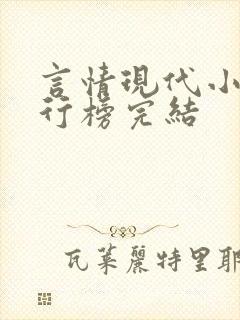 言情現代小
行榜完結
瓦萊麗特里耶